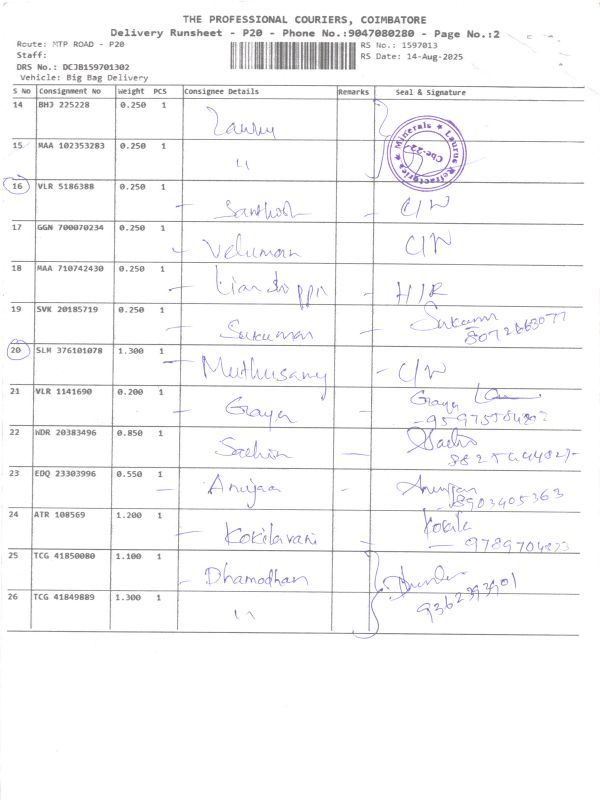 THE PROFESSIONAL COURIERS, COIMBATORE
Delivery Runsheet - P20 - Phone No.:9047080280 - Page No.:2
Route: MTP ROAD - P20 RS No.: 1597013
Staff: RS Date: 14-Aug-2025
DRS No.: DCJB159701302
Vehicle: Big Bag Delivery
S No Consignment No Weight PCS Consignee Details Remarks Seal & Signature
14 BHJ 225228 0.250 1
Minerals ★ Laurus Refractories ★
Cbe-22
15 MAA 102353283 0.250 1 "
16 VLR 5186388 0.250 1
- Santhosh - C/W
17 GGN 700070234 0.250 1
- Veluman C/W
18 MAA 710742430 0.250 1
- - H/R
19 SVK 20185719 0.250 1
- Sukumar - Sukumar
20 SLM 376101078 1.300 1
- Muthusamy - C/W
21 VLR 1141690 0.200 1
- Gaya Gaya
22 WDR 20383496 0.850 1
- Sachin
23 EDQ 23303996 0.550 1
- Anujaa -
8903405363
24 ATR 108569 1.200 1
- Kokilavani Kokila
25 TCG 41850080 1.100 1
- Dhamodhan
26 TCG 41849889 1.300 1
"